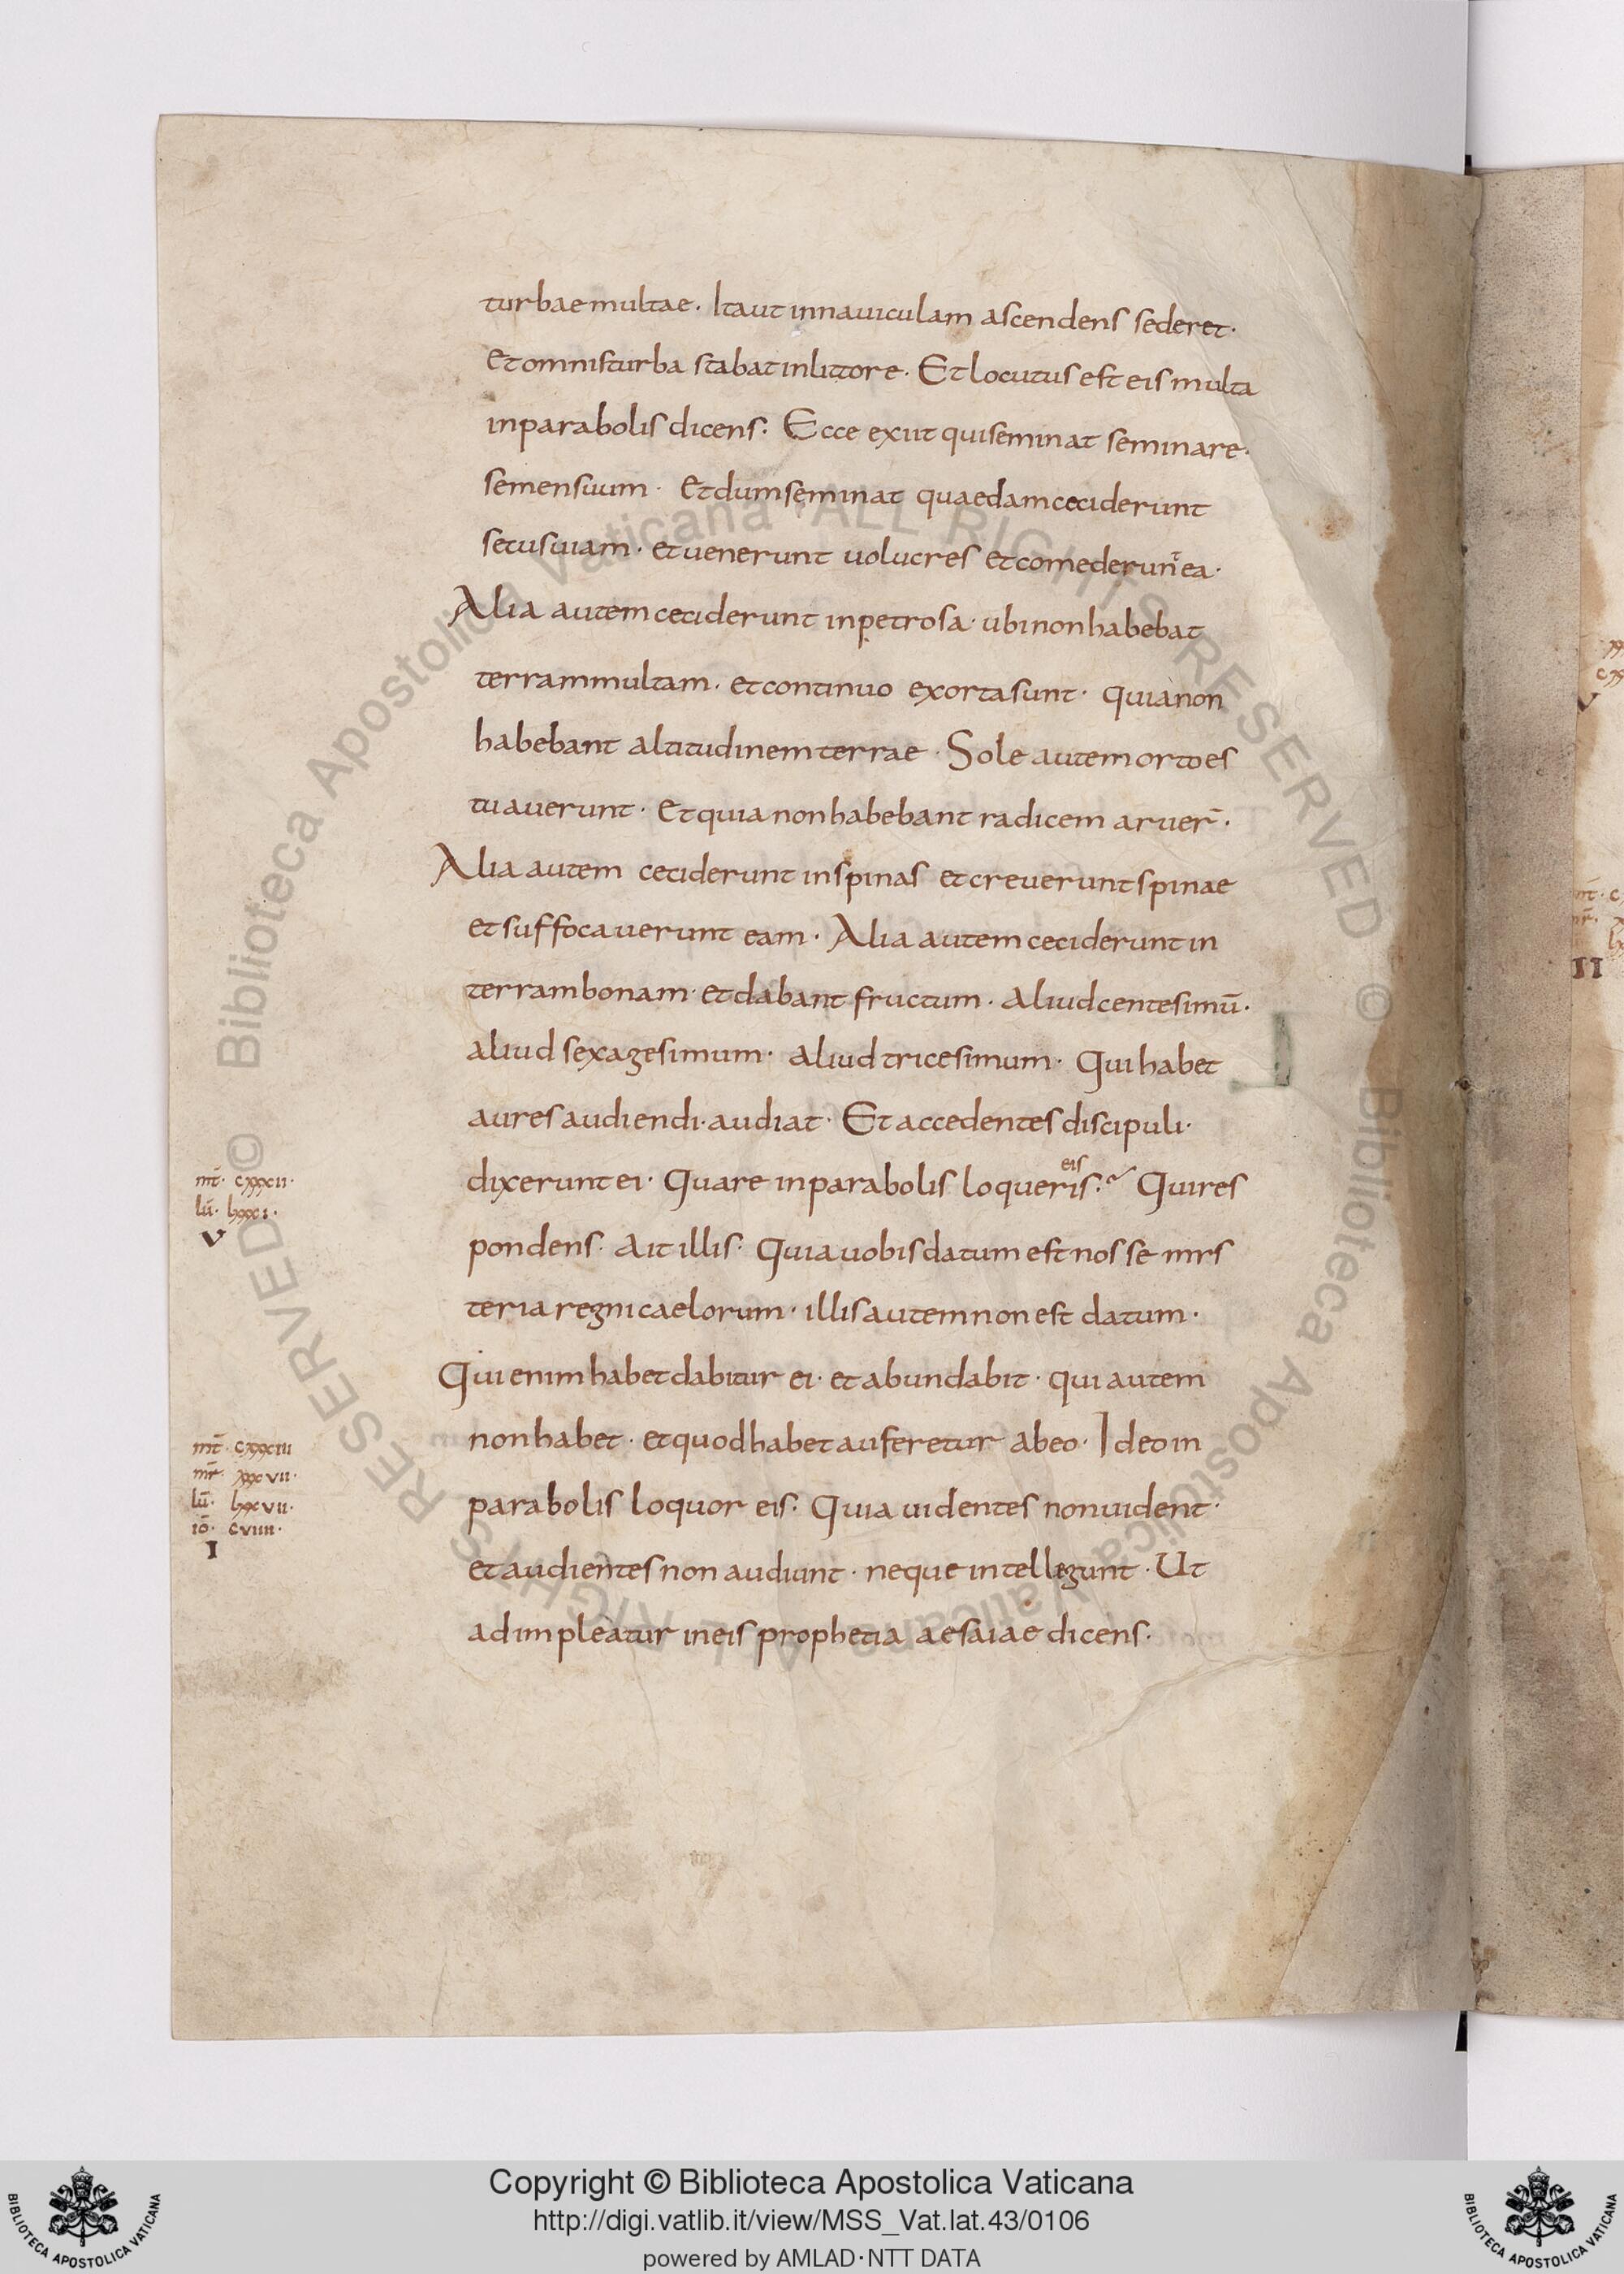 turbae multae· Itaut innauiculam ascendens sederet·
Et omnis turba stabat inlittore· Et locutus est eis multa
inparabolis dicens· Ecce exiit qui seminat seminare·
semen suum· Et dum seminat quaedam ceciderunt
secus uiam· et uenerunt uolucres et comederun̄ ea·
Alia autem ceciderunt inpetrosa· ubi non habebat
terram multam· et continuo exorta sunt· quia non
habebant altitudinem terrae· Sole autem orto es
tuauerunt· Et quia non habebant radicem aruer̄·
Alia autem ceciderunt inspinas et creuerunt spinae
et suffocauerunt eam· Alia autem ceciderunt in
terram bonam· et dabant fructum· Aliud centesimū·
aliud sexagesimum· aliud tricesimum· Qui habet
aures audiendi· audiat· Et accedentes discipuli·
eis
dixerunt ei· Quare inparabolis loqueris? Qui res
mt̄· cxxxii·
lū· lxxxi·
V
pondens· Ait illis· Quia uobis datum est nosse mis
teria regni caelorum· illis autem non est datum·
Qui enim habet dabitur ei· et abundabit· qui autem
non habet· et quod habet auferetur abeo· Ideo in
mt̄· cxxxiii
mr̄· xxxvii·
lū· lxxvii·
iō· cviiii·
I
parabolis loquor eis· Quia uidentes non uident·
et audientes non audiunt· neque intellegunt· Ut
adimpleatur in eis prophetia aesaiae dicens·
Copyright © Biblioteca Apostolica Vaticana
http://digi.vatlib.it/view/MSS_Vat.lat.43/0106
powered by AMLAD·NTT DATA
© Biblioteca Apostolica Vaticana · ALL RIGHTS RESERVED © Biblioteca Apostolica Vaticana · ALL RIGHTS RESERVED
BIBLIOTECA APOSTOLICA VATICANA
BIBLIOTECA APOSTOLICA VATICANA